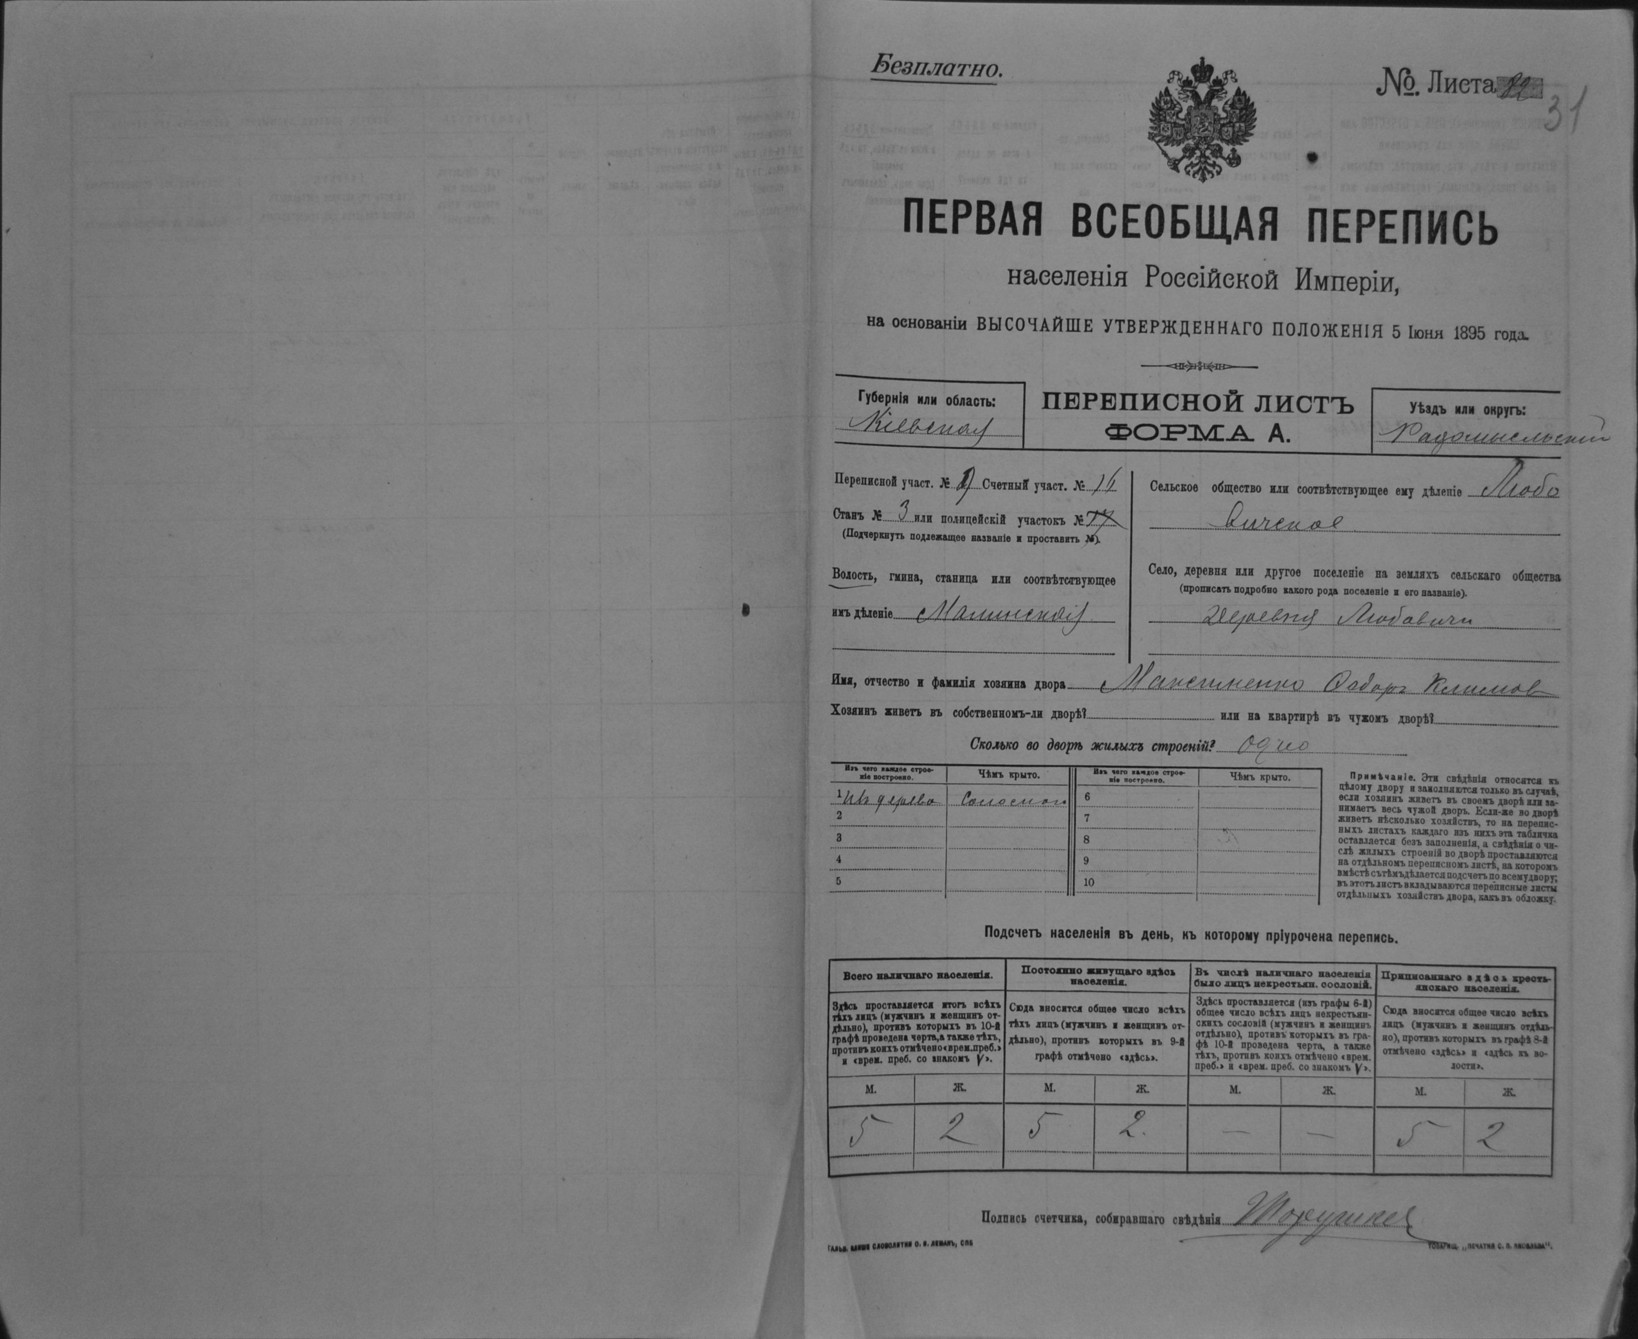 Безплатно.
№. Листа 31
ПЕРВАЯ ВСЕОБЩАЯ ПЕРЕПИСЬ
населенія Россійской Имперіи,
на основаніи ВЫСОЧАЙШЕ УТВЕРЖДЕННАГО ПОЛОЖЕНІЯ 5 Іюня 1895 года.
Губернія или область:
Кіевская
ПЕРЕПИСНОЙ ЛИСТЪ
ФОРМА А.
Уѣздъ или округъ:
Радомысльскій
Переписной участ. № Счетный участ. №
Станъ № 3 или полицейскій участокъ №
(Подчеркнуть подлежащее названіе и проставить №).
Волость, гмина, станица или соотвѣтствующее
имъ дѣленіе Малинская
Сельское общество или соотвѣтствующее ему дѣленіе Любо
вичское
Село, деревня или другое поселеніе на земляхъ сельскаго общества
(прописать подробно какого рода поселеніе и его названіе).
деревня Любовичи
Имя, отчество и фамилія хозяина двора Максименко Климов
Хозяинъ живетъ въ собственномъ-ли дворѣ? или на квартирѣ въ чужомъ дворѣ?
Сколько во дворѣ жилыхъ строеній? одно
Изъ чего каждое строе-
ніе построено.
Чѣмъ крыто.
Изъ чего каждое строе-
ніе построено.
Чѣмъ крыто.
1 Изъ дерева Соломой 6
2 7
3 8
4 9
5 10
Примѣчаніе. Эти свѣдѣнія относятся къ
цѣлому двору и заполняются только въ случаѣ,
если хозяинъ живетъ въ своемъ дворѣ или за-
нимаетъ весь чужой дворъ. Если-же во дворѣ
живетъ нѣсколько хозяйствъ, то на перепис-
ныхъ листахъ каждаго изъ нихъ эта табличка
оставляется безъ заполненія, а свѣдѣнія о чи-
слѣ жилыхъ строеній во дворѣ проставляются
на отдѣльномъ переписномъ листѣ, на которомъ
вмѣстѣ съ тѣмъ дѣлается подсчетъ по всему двору;
въ этотъ листъ вкладываются переписные листы
отдѣльныхъ хозяйствъ двора, какъ въ обложку.
Подсчетъ населенія въ день, къ которому пріурочена перепись.
Всего наличнаго населенія.
Здѣсь проставляется итогъ всѣхъ
тѣхъ лицъ (мужчинъ и женщинъ от-
дѣльно), противъ которыхъ въ 10-й
графѣ проведена черта, а также тѣхъ,
противъ коихъ отмѣчено «врем. преб.»
и «врем. преб. со знакомъ V».
Постоянно живущаго здѣсь
населенія.
Сюда вносится общее число всѣхъ
тѣхъ лицъ (мужчинъ и женщинъ от-
дѣльно), противъ которыхъ въ 9-й
графѣ отмѣчено «здѣсь».
Въ числѣ наличнаго населенія
было лицъ некрестьян. сословій.
Здѣсь проставляется (изъ графы 6-й)
общее число всѣхъ лицъ некрестьян-
скихъ сословій (мужчинъ и женщинъ
отдѣльно), противъ которыхъ въ гра-
фѣ 10-й проведена черта, а также
тѣхъ, противъ коихъ отмѣчено «врем.
преб.» и «врем. преб. со знакомъ V».
Приписаннаго здѣсь кресть-
янскаго населенія.
Сюда вносится общее число всѣхъ
лицъ (мужчинъ и женщинъ отдѣль-
но), противъ которыхъ въ графѣ 8-й
отмѣчено «здѣсь» и «здѣсь къ во-
лости».
М. Ж. М. Ж. М. Ж. М. Ж.
5 2 5 2. — — 5 2
Подпись счетчика, собиравшаго свѣдѣнія